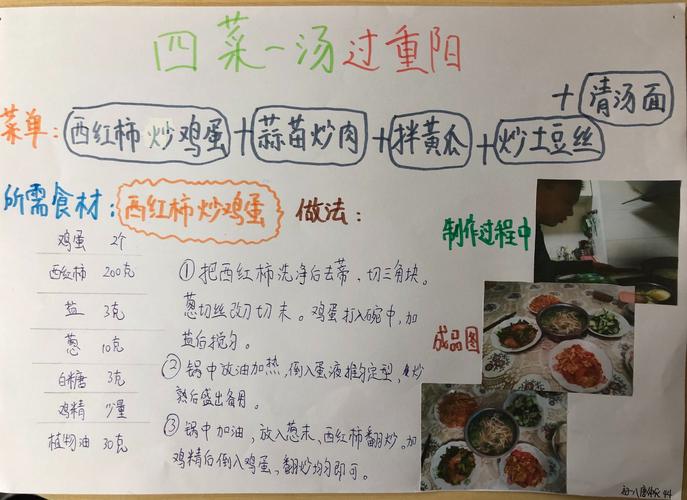 四菜一汤过重阳
菜单：西红柿炒鸡蛋+蒜苗炒肉+拌黄瓜+炒土豆丝+清汤面
所需食材：西红柿炒鸡蛋 做法：
鸡蛋 2个
西红柿 200克
盐 3克
葱 10克
白糖 3克
鸡精 少量
植物油 30克
①把西红柿洗净后去蒂、切三角块。
葱切丝改刀切末。鸡蛋打入碗中，加
盐后搅匀。
②锅中放油加热，倒入蛋液摊匀定型，炒
熟后盛出备用。
③锅中加油，放入葱末、西红柿翻炒。加
鸡精后倒入鸡蛋、翻炒均匀即可。
制作过程中
成品图